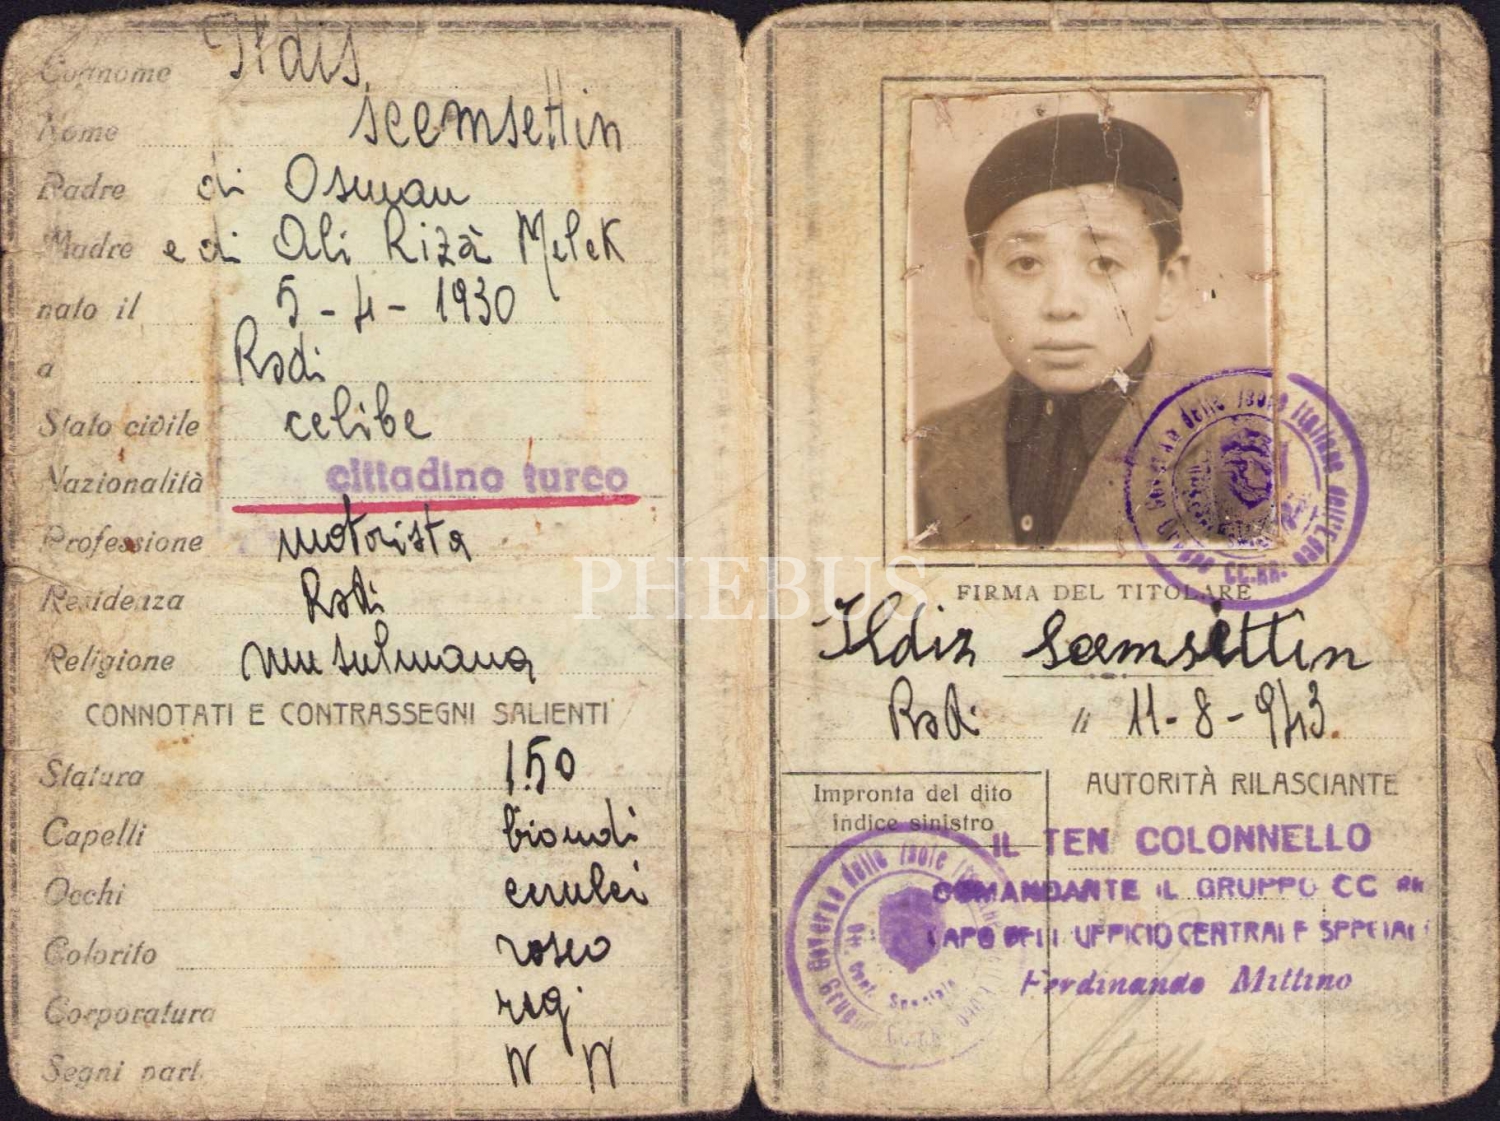 Cognome Ildis
Nome scemsettin
Padre di Osman
Madre e di Ali Rizà Melek
nato il 5-4-1930
a Rodi
Stato civile celibe
Nazionalità cittadino turco
Professione motorista
Residenza Rodi
Religione musulmana
CONNOTATI E CONTRASSEGNI SALIENTI
Statura 1.50
Capelli biondi
Occhi cerulei
Colorito roseo
Corporatura reg
Segni part. N N
PHEBUS
FIRMA DEL TITOLARE
Ildiz Scemsettin
Rodi li 11-8-943.
Impronta del dito
indice sinistro
AUTORITÀ RILASCIANTE
IL TEN COLONNELLO
COMANDANTE IL GRUPPO CC RR
CAPO DELL UFFICIO CENTRALE SPECIALE
Ferdinando Mittino
Governo delle Isole Italiane dell'Egeo
Gruppo CC.RR.
Governo delle Isole